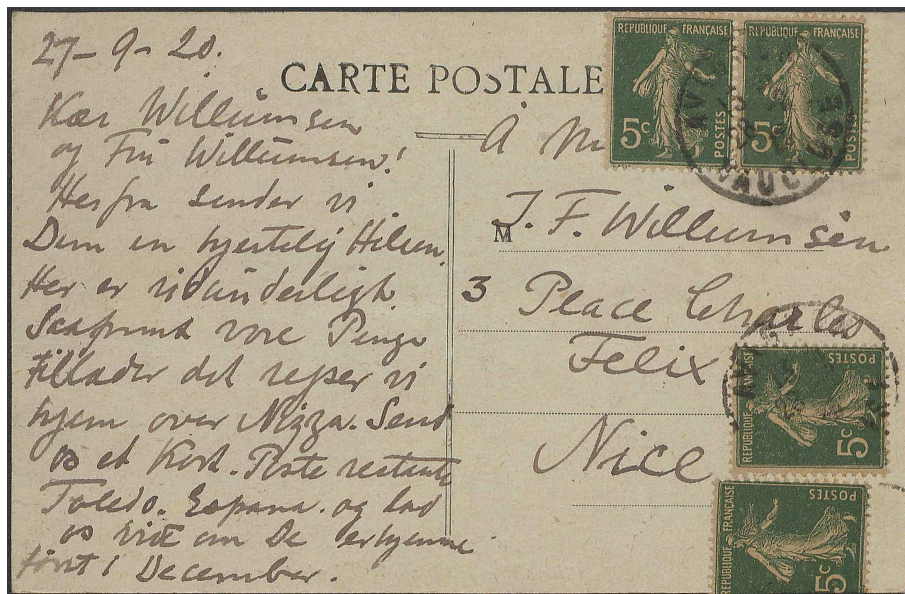 27-9-20.
CARTE POSTALE
Kær Willumsen
og Fru Willumsen!
Herfra sender vi
Dem en hjertelig Hilsen.
Her er vidunderligt.
Saafremt vore Penge
tillader det rejser vi
hjem over Nizza. Send
os et Kort. Poste restante
Toledo. Espana. og lad
os vide om De er hjemme
først i December.
A M
M J. F. Willumsen
3 Place Charles
Felix
Nice
REPUBLIQUE FRANÇAISE
5c POSTES
REPUBLIQUE FRANÇAISE
5c POSTES
VAUCLUSE
REPUBLIQUE
POSTES
5c
REPUBLIQUE FRANÇAISE
POSTES
5c